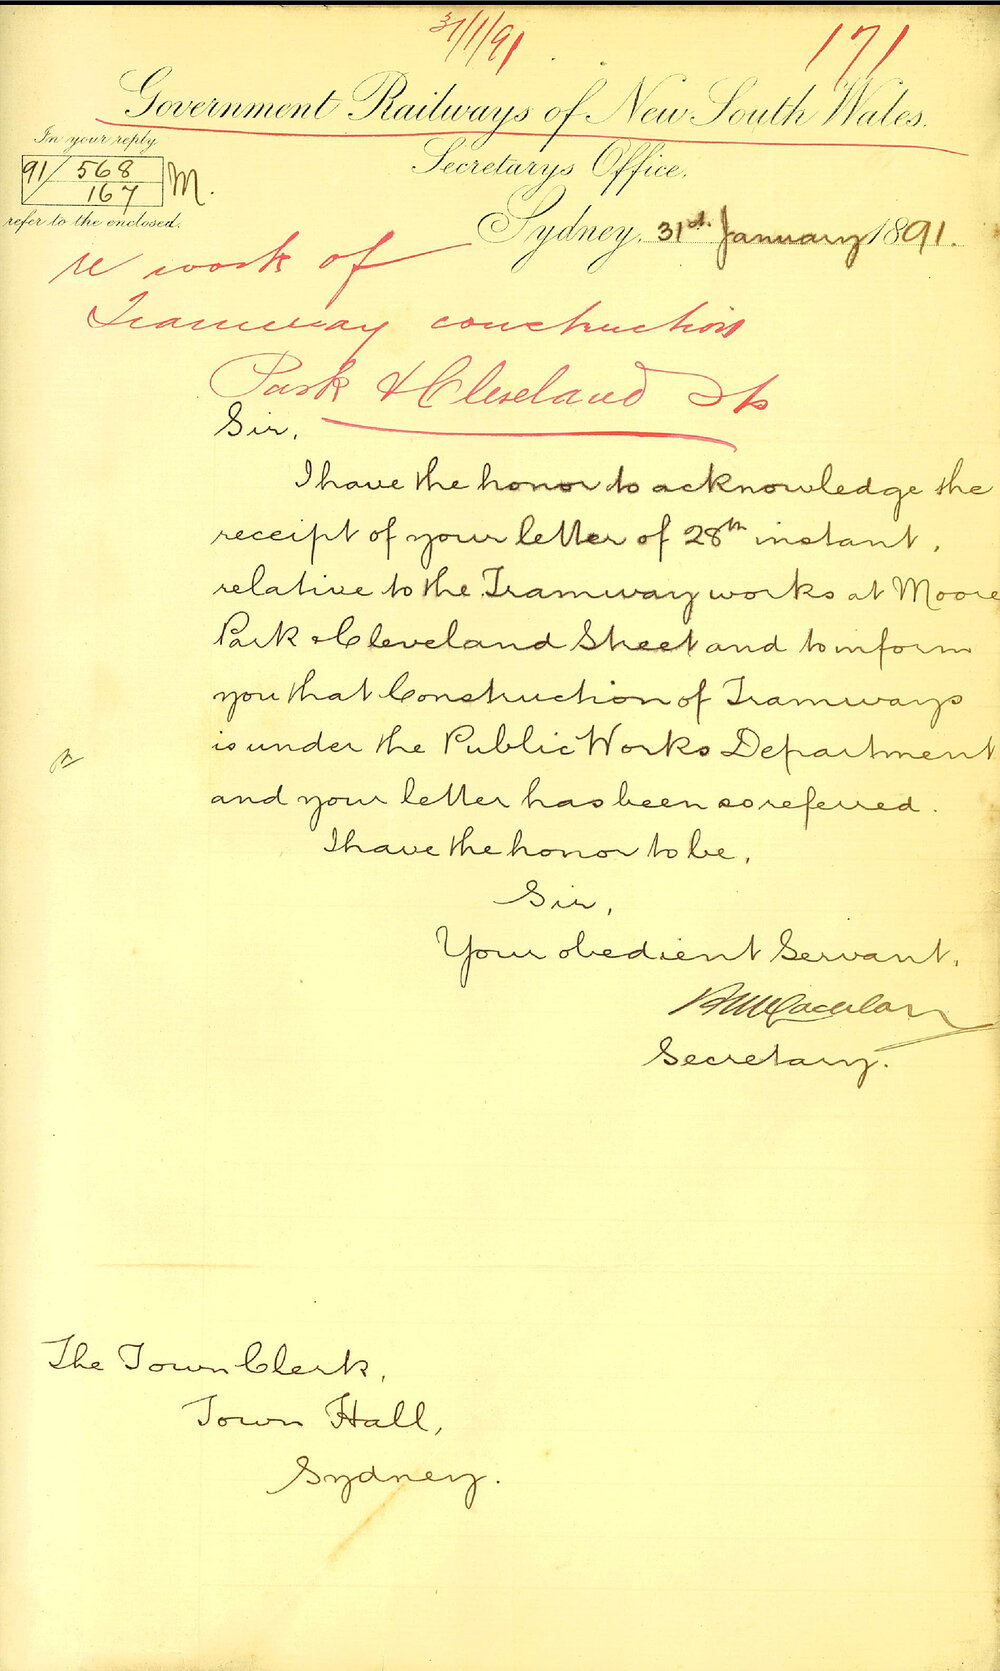 31/1/91
171
Government Railways of New South Wales.
In your reply
Secretarys Office.
91/568
167
M.
refer to the enclosed.
Sydney, 31st. January 1891.
re work of
Tramway construction
Park & Cleveland Sts
Sir,
I have the honor to acknowledge the
receipt of your letter of 28th instant,
relative to the Tramway works at Moore
Park & Cleveland Street and to inform
you that Construction of Tramways
is under the Public Works Department
and your letter has been so referred.
I have the honor to be,
Sir,
Your obedient Servant,
Secretary.
The Town Clerk,
Town Hall,
Sydney.